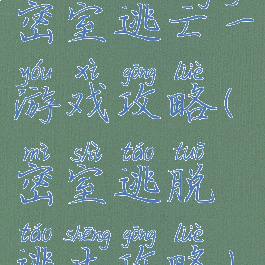 密室逃
yóu xì gōng lüè
游戏攻略(
mì shì táo tuō
密室逃脱
táo shēng gōng lüè
逃生攻略)